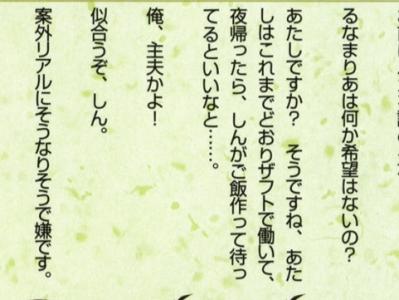 るなまりあは何か希望はないの？
あたしですか？　そうですね、あた
しはこれまでどおりザフトで働いて、
夜帰ったら、しんがご飯作って待っ
てるといいなと……。
俺、主夫かよ！
似合うぞ、しん。
案外リアルにそうなりそうで嫌です。